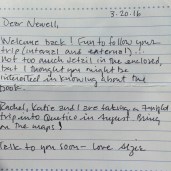 3.20.16
Dear Newell,
Welcome back! Fun to follow your
trip (internal and external)!!
Not too much detail in the enclosed,
but I thought you might be
interested in knowing about the
book.
Rachel, Katie and I are taking a 7 night
trip into Quetico in August. Bring
on the maps!
Talk to you soon - Love